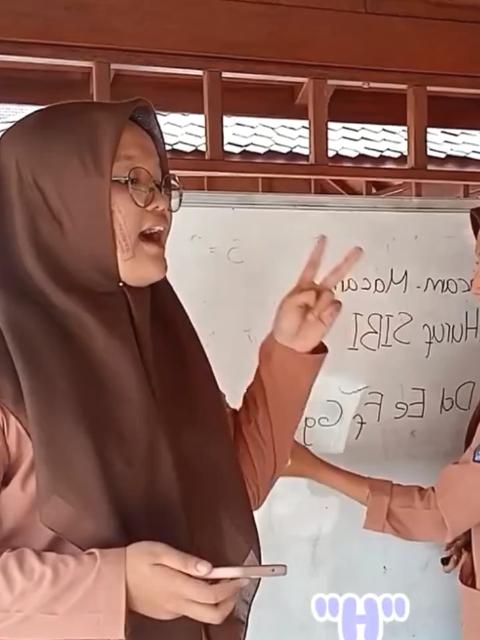 S =
acam-Macam
Huruf SIBI
Dd Ee Ff Gg
"H"